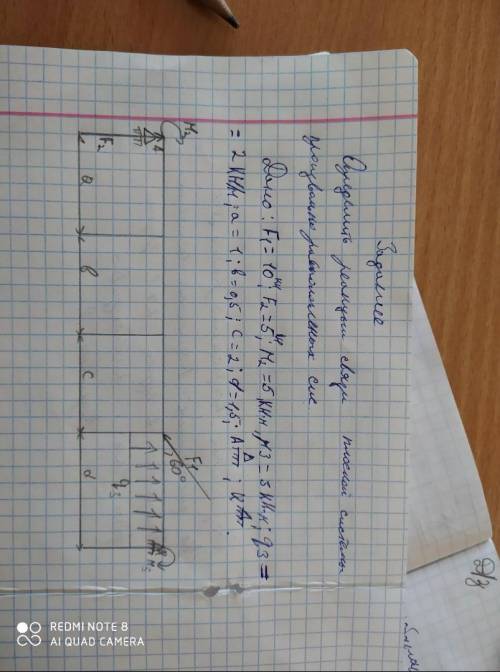 Задание
Определить реакции связи плоской системы
произвольно расположенных сил
Дано: F1 = 10кН; F2 = 5кН; M2 = 5 кНм, M3 = 5 кНм; q3 =
= 2 кН/м; a = 1; b = 0,5; c = 2; d = 1,5; A
M2
A
F2
F1
60°
q3
M3
a
b
c
d
Д/з
REDMI NOTE 8
AI QUAD CAMERA